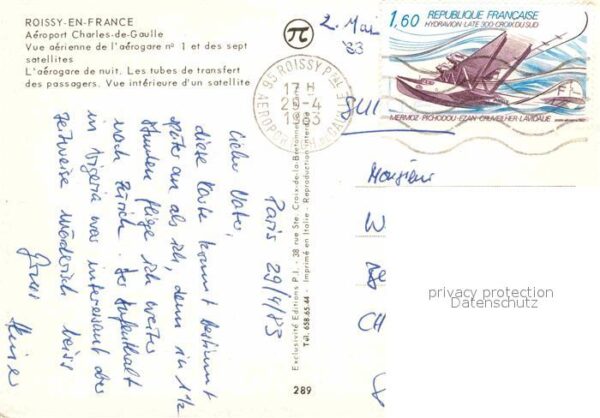 ROISSY-EN-FRANCE
Aéroport Charles-de-Gaulle
Vue aérienne de l'aérogare nº 1 et des sept
satellites
L'aérogare de nuit. Les tubes de transfert
des passagers. Vue intérieure d'un satellite
2. Mai
83
95 ROISSY PPAL
17 H
29-4
1983
AEROPORT CH. DE GAULLE
1,60 REPUBLIQUE FRANÇAISE
HYDRAVION-LATE 300-CROIX DU SUD
MERMOZ-PICHODOU-EZAN-CRUVEILHER-LAVIDALIE
SUI
Paris 29/4/83
Lieber Vater,
diese Karte kommt bestimmt
später an als ich, denn in 1½
Stunden fliege ich weiter
nach Zürich. Der Aufenthalt
in Nigeria war interessant aber
zeitweise mörderisch heiss
Gruss
Exclusivité Editions P.I. - 38 rue Ste. Croix-de-la-Bretonnerie
Tél. 658.65.44 - Imprimé en Italie - Reproduction interdite
289
Monsieur
W
CH
privacy protection
Datenschutz